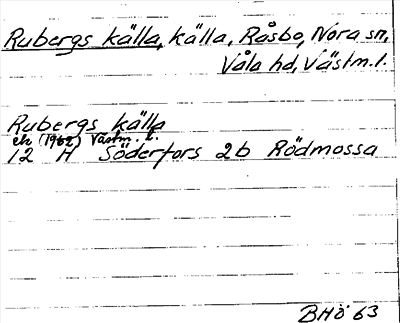 Rubergs källa, källa, Råsbo, Nora sn,
Våla hd, Västm. l.
Rubergs källa
ek (1962) Västm. l.
12 H Söderfors 2b Rödmossa
BHÖ 63